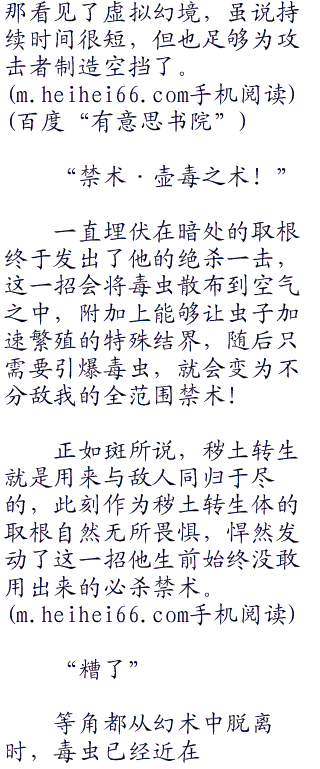 那看见了虚拟幻境，虽说持
续时间很短，但也足够为攻
击者制造空挡了。
(m.heihei66.com手机阅读)
(百度“有意思书院”)
“禁术·壶毒之术！”
一直埋伏在暗处的取根
终于发出了他的绝杀一击，
这一招会将毒虫散布到空气
之中，附加上能够让虫子加
速繁殖的特殊结界，随后只
需要引爆毒虫，就会变为不
分敌我的全范围禁术！
正如斑所说，秽土转生
就是用来与敌人同归于尽
的，此刻作为秽土转生体的
取根自然无所畏惧，悍然发
动了这一招他生前始终没敢
用出来的必杀禁术。
(m.heihei66.com手机阅读)
“糟了”
等角都从幻术中脱离
时，毒虫已经近在